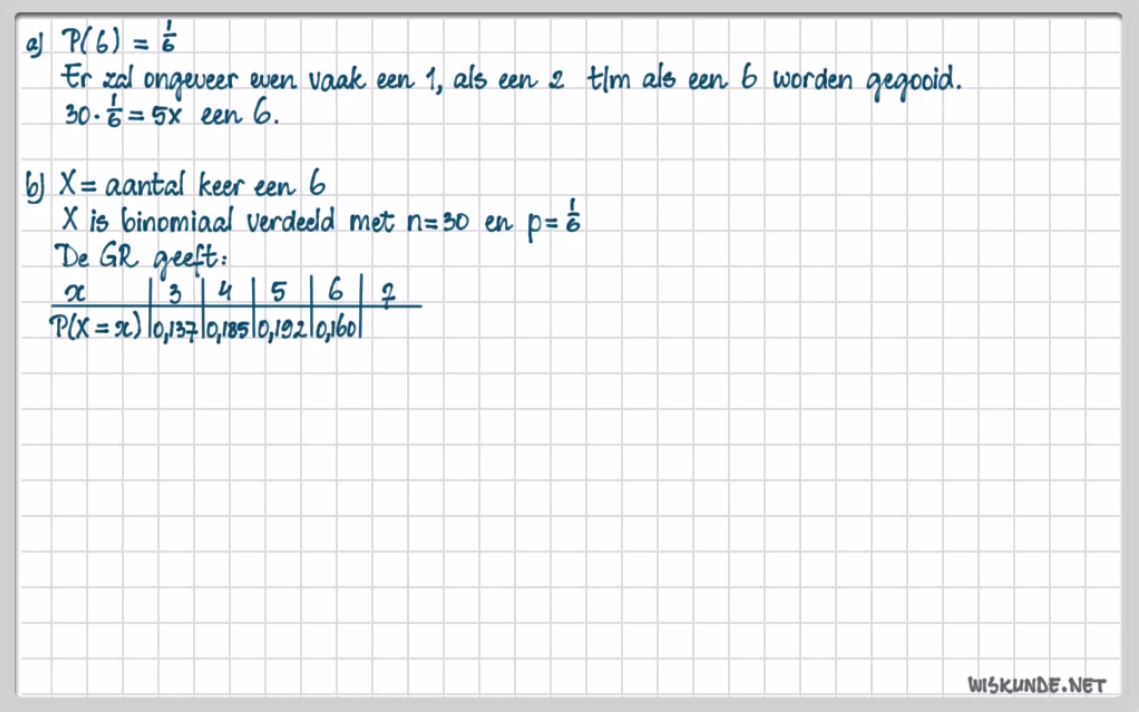 a) P(6) = 1/6
Er zal ongeveer even vaak een 1, als een 2 t/m als een 6 worden gegooid.
30 · 1/6 = 5x een 6.
b) X = aantal keer een 6
X is binomiaal verdeeld met n=30 en p= 1/6
De GR geeft:
x | 3 | 4 | 5 | 6 | 7
P(X = x) | 0,137 | 0,185 | 0,192 | 0,160 |
WISKUNDE.NET